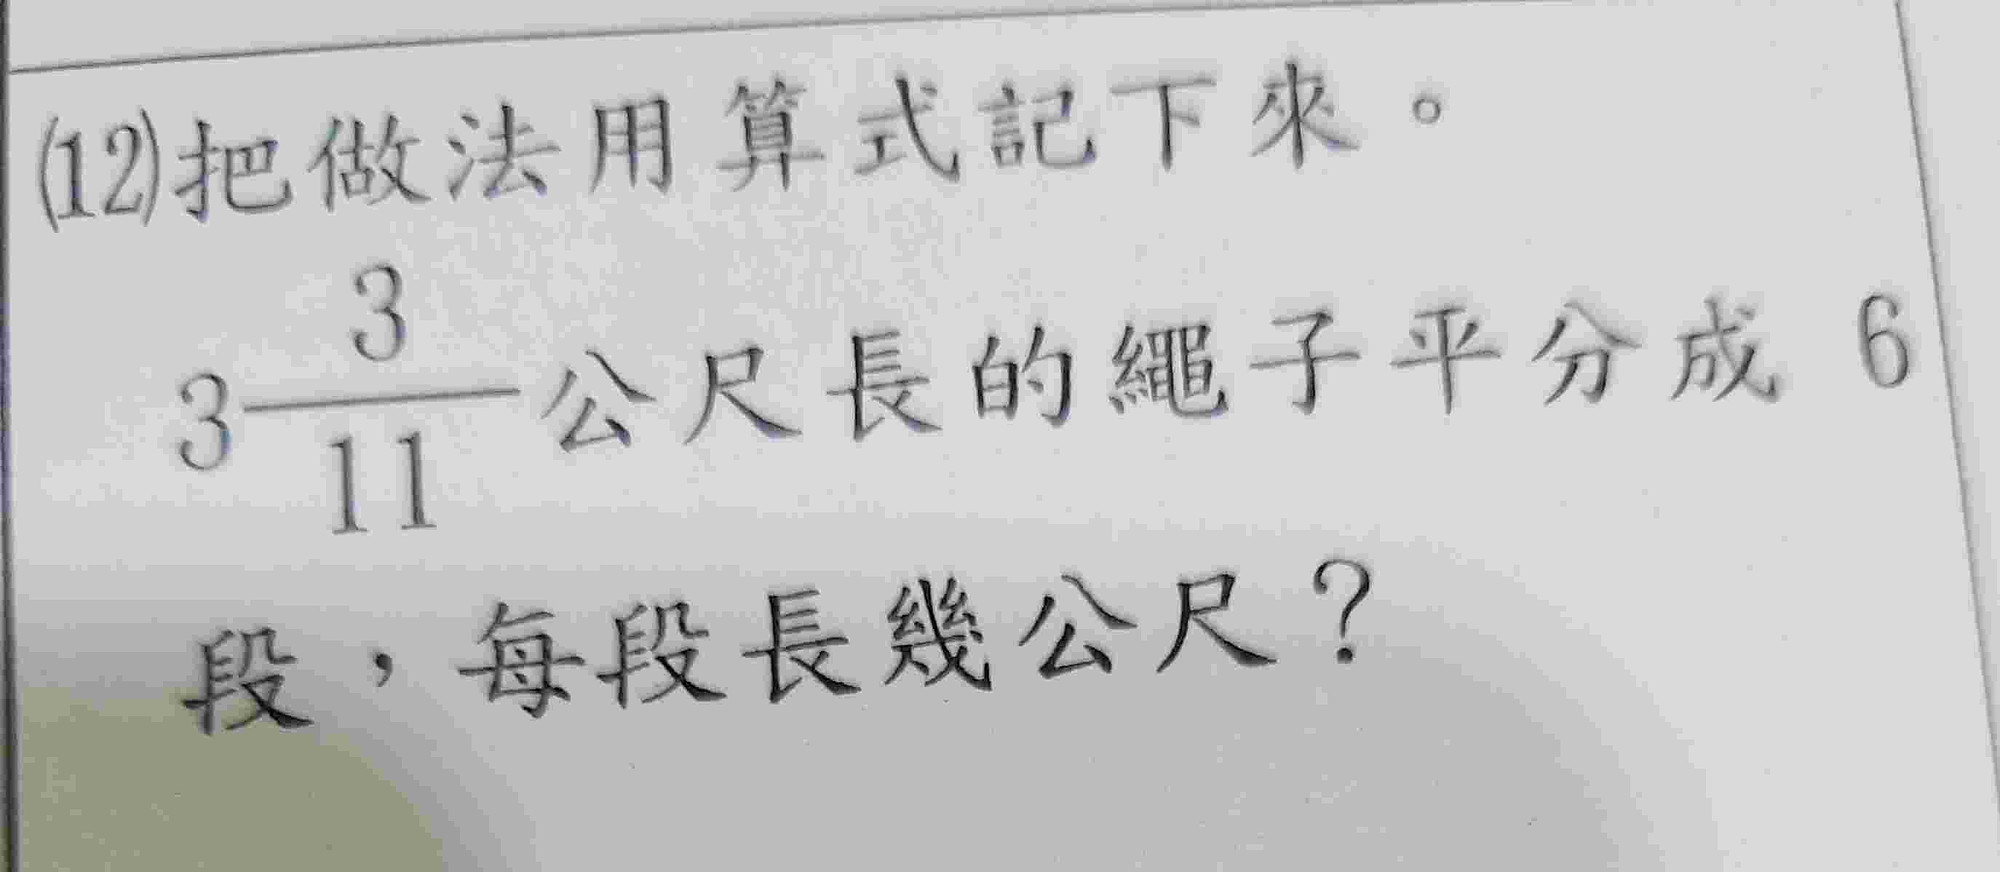 ⑿把做法用算式記下來。
3 3/11 公尺長的繩子平分成 6
段，每段長幾公尺？